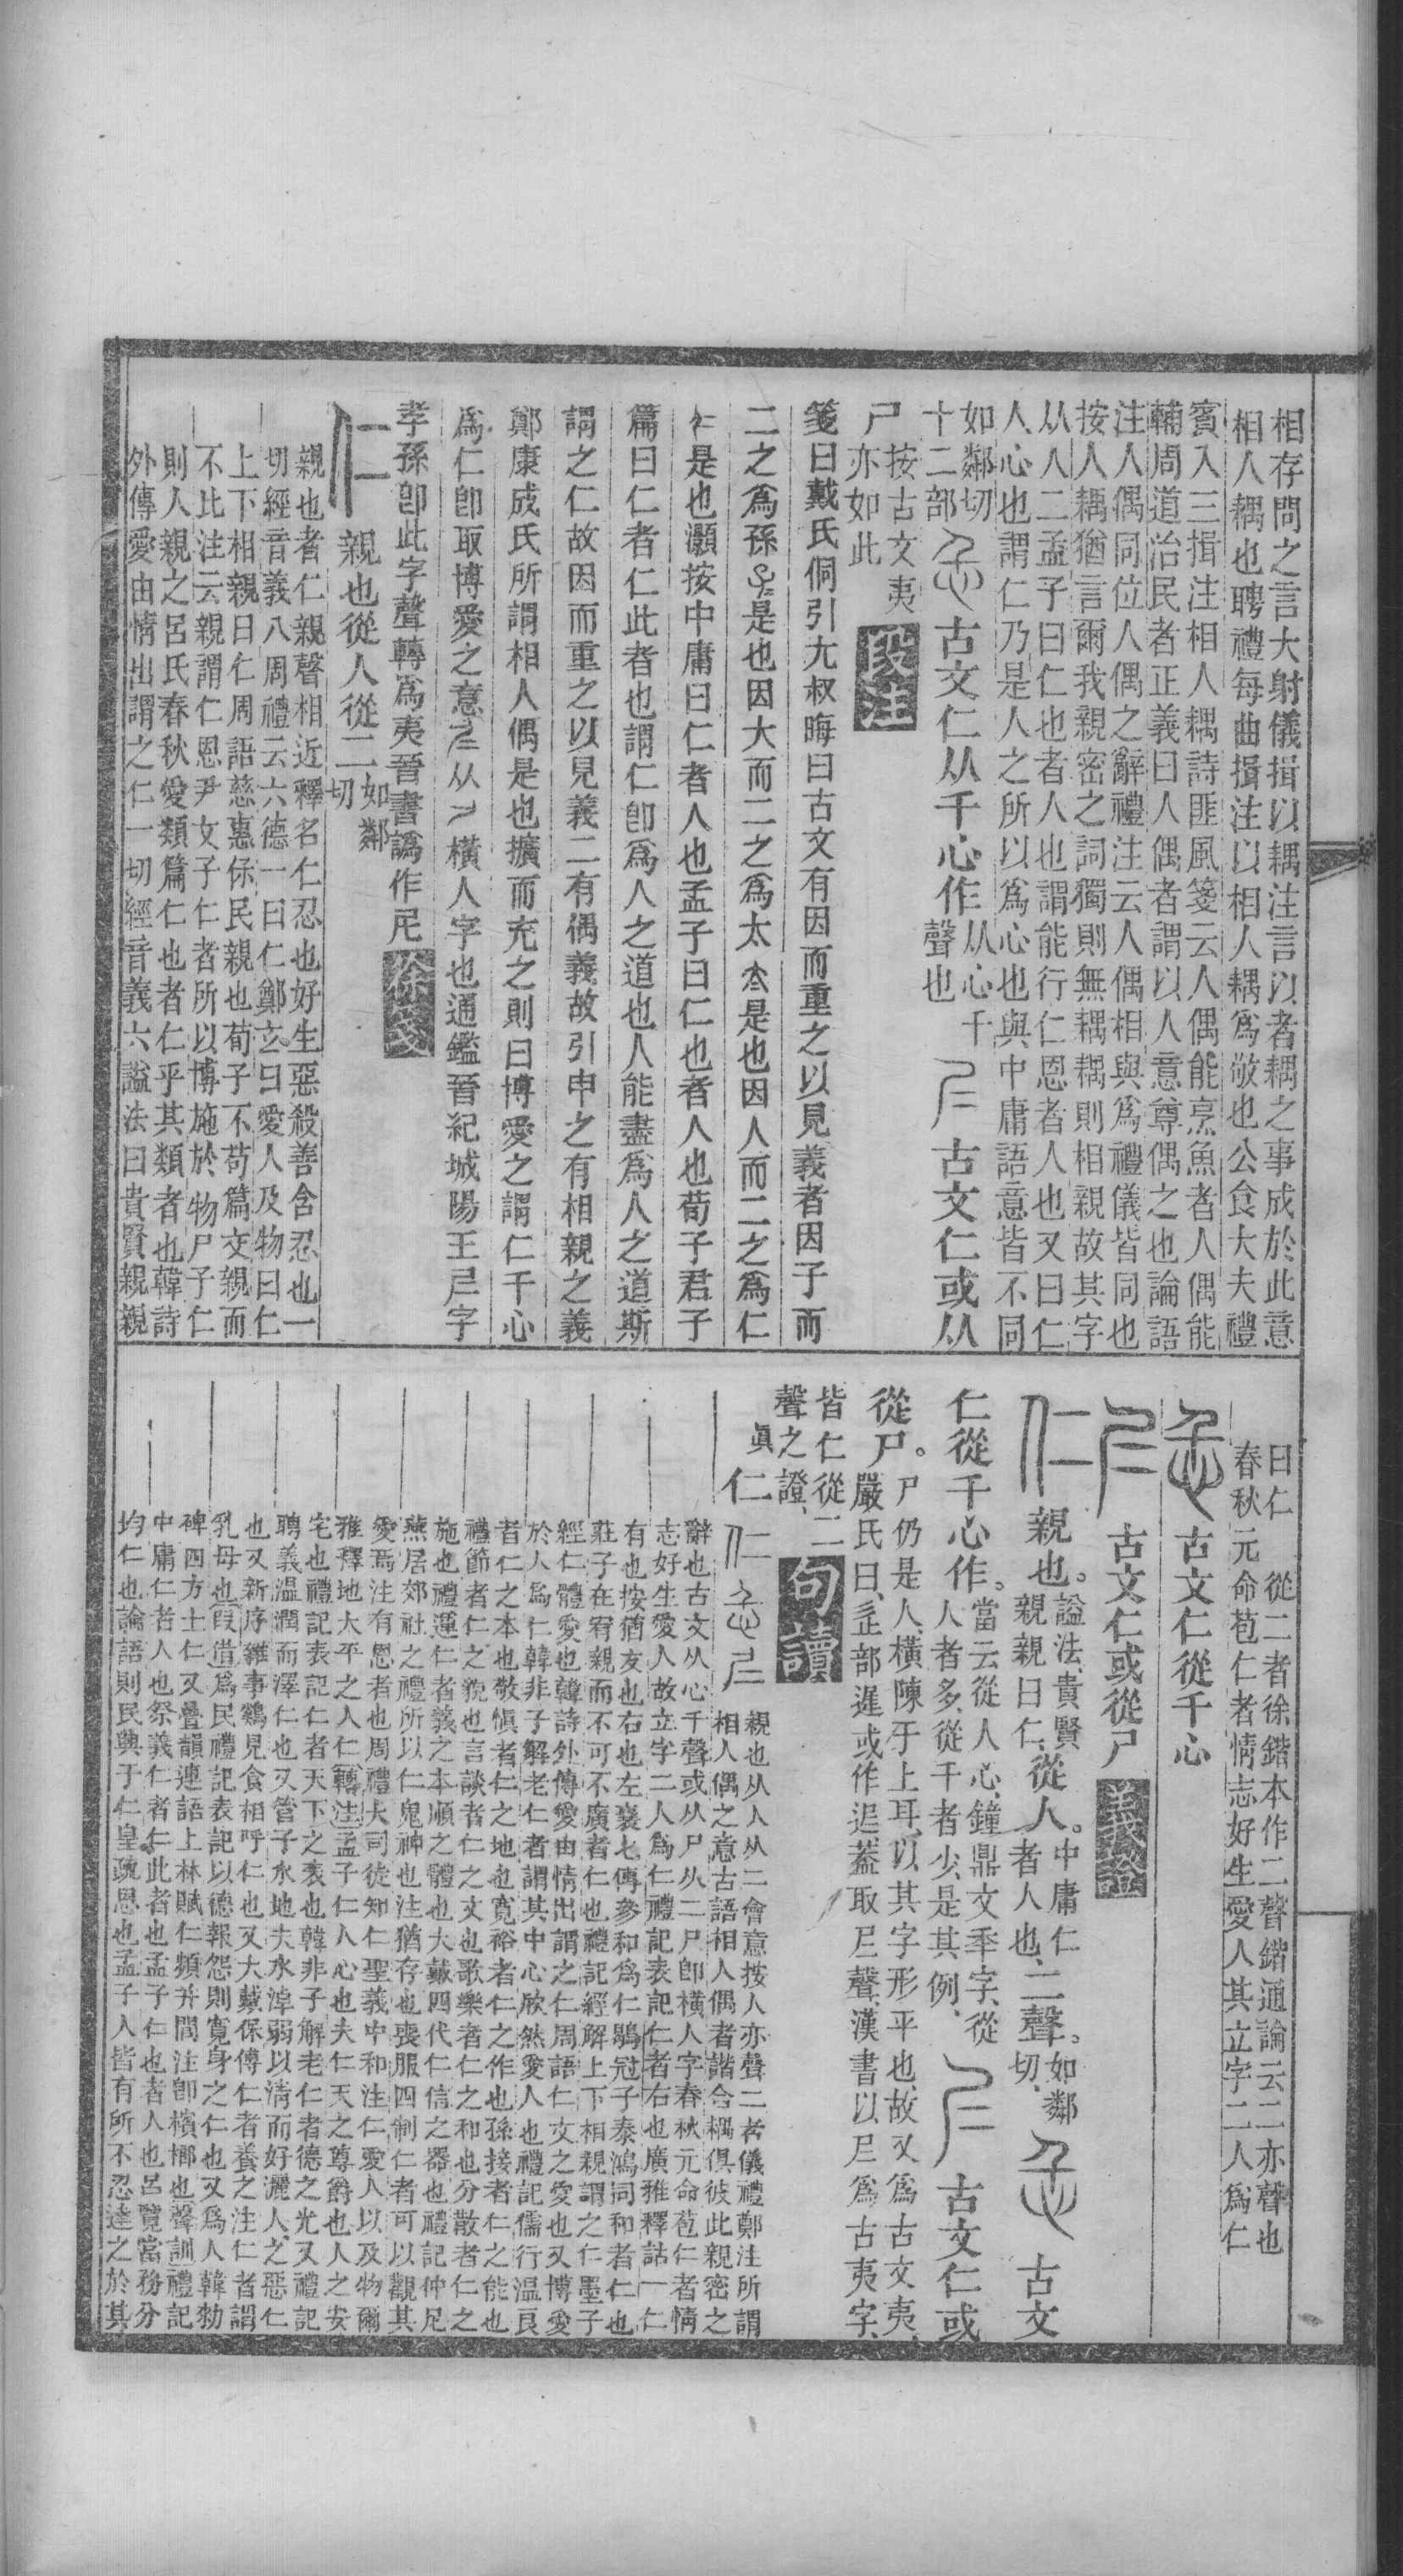 相存問之言大射儀揖以耦注言以者耦之事成於此意
相人耦也聘禮每曲揖注以相人耦爲敬也公食大夫禮
賓入三揖注相人耦詩匪風箋云人偶能烹魚者人偶能
輔周道治民者正義曰人偶者謂以人意尊偶之也論語
注人偶同位人偶之辭禮注云人偶相與爲禮儀皆同也
按人耦猶言爾我親密之詞獨則無耦耦則相親故其字
从人二孟子曰仁也者人也謂能行仁恩者人也又曰仁
人心也謂仁乃是人之所以爲心也與中庸語意皆不同
如鄰切
十二部
古文仁从千心作
从心千
聲也
古文仁或从
尸
按古文夷
亦如此
段注
箋曰戴氏侗引尢叔晦曰古文有因而重之以見義者因子而
二之爲孫是也因大而二之爲太夳是也因人而二之爲仁
是也灝按中庸曰仁者人也孟子曰仁也者人也荀子君子
篇曰仁者仁此者也謂仁卽爲人之道也人能盡爲人之道斯
謂之仁故因而重之以見義二有偶義故引申之有相親之義
鄭康成氏所謂相人偶是也擴而充之則曰博愛之謂仁千心
爲仁卽取博愛之意从橫人字也通鑑晉紀城陽王㠯字
孝孫卽此字聲轉爲夷晉書譌作尼
徐箋
仁
親也從人從二
如鄰
切
親也者仁親聲相近釋名仁忍也好生惡殺善含忍也一
切經音義八周禮云六德一曰仁鄭玄曰愛人及物曰仁
上下相親曰仁周語慈惠保民親也荀子不苟篇交親而
不比注云親謂仁恩尹文子仁者所以博施於物尸子仁
則人親之呂氏春秋愛類篇仁也者仁乎其類者也韓詩
外傳愛由情出謂之仁一切經音義六謚法曰貴賢親親
曰仁　從二者徐鍇本作二聲鍇通論云二亦聲也
春秋元命苞仁者情志好生愛人其立字二人爲仁
古文仁從千心
古文仁或從尸
義證
仁
親也。
謚法、貴賢
親親曰仁、
從人。
中庸仁
者人也、
二聲。
如鄰
切、
古文
仁從千心作。
當云從人心、鐘鼎文秊字、從
人者多、從千者少、是其例、
古文仁或
從尸。
尸仍是人、橫陳于上耳、以其字形平也、故又爲古文夷、
嚴氏曰、辵部遲或作迡、蓋取尼聲、漢書以尼爲古夷字、
皆仁從二
聲之證、
句讀
眞
仁
親也从人从二會意按人亦聲二者儀禮鄭注所謂
相人偶之意古語相人偶者諧合耦俱彼此親密之
辭也古文从心千聲或从尸从二尸卽橫人字春秋元命苞仁者情
志好生愛人故立字二人爲仁禮記表記仁者右也廣雅釋詁一仁
有也按猶友也右也左襄七傳參和爲仁鶡冠子泰鴻同和者仁也
莊子在宥親而不可不廣者仁也禮記經解上下相親謂之仁墨子
經仁體愛也韓詩外傳愛由情出謂之仁周語仁文之愛也又博愛
於人爲仁韓非子解老仁者謂其中心欣然愛人也禮記儒行溫良
者仁之本也敬愼者仁之地也寬裕者仁之作也孫接者仁之能也
禮節者仁之貌也言談者仁之文也歌樂者仁之和也分散者仁之
施也禮運仁者義之本順之體也大戴四代仁信之器也禮記仲尼
燕居郊社之禮所以仁鬼神也注猶存也喪服四制仁者可以觀其
愛焉注有恩者也周禮大司徒知仁聖義中和注仁愛人以及物爾
雅釋地大平之人仁轉注孟子仁人心也夫仁天之尊爵也人之安
宅也禮記表記仁者天下之表也韓非子解老仁者德之光又禮記
聘義溫潤而澤仁也又管子水地夫水淖弱以清而好灑人之惡仁
也又新序雜事鷄見食相呼仁也又大戴保傅仁者養之注仁者謂
乳母也叚借爲民禮記表記以德報怨則寬身之仁也又爲人韓勑
碑四方士仁又疊韻連語上林賦仁頻幷閭注卽檳榔也聲訓禮記
中庸仁者人也祭義仁者仁此者也孟子仁也者人也呂覽當務分
均仁也論語則民興于仁皇疏恩也孟子人皆有所不忍達之於其